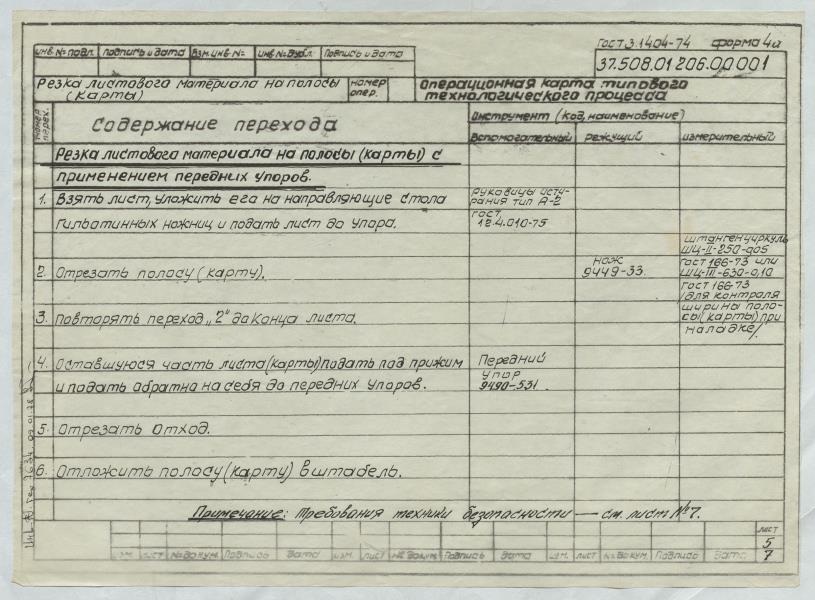 ГОСТ 3.1404-74 форма 4а
инв.№ подл. подпись и дата Взм.инв.№ инв.№ дубл. Подпись и дата
37.508.01206.00001
Резка листового материала на полосы
(карты)
номер
опер.
Операционная карта типового
технологического процесса
номер
перех.
Содержание перехода
Инструмент (код, наименование)
Вспомогательный режущий измерительный
Резка листового материала на полосы (карты) с
применением передних упоров.
1. Взять лист, уложить его на направляющие стола
гильотинных ножниц и подать лист до упора.
рукавицы исти-
рания тип А-2
ГОСТ
12.4.010-75
2. Отрезать полосу (карту).
нож
9449-33.
штангенциркуль
ШЦ-II-250-0,05
ГОСТ 166-73 или
ШЦ-III-630-0,10
ГОСТ 166-73
/для контроля
ширины поло-
сы(карты) при
наладке/.
3. Повторять переход „2" до конца листа.
4. Оставшуюся часть листа (карты) подать под прижим
и подать обратно на себя до передних упоров.
Передний
упор
9490-531
5. Отрезать отход.
6. Отложить полосу (карту) в штабель.
Примечание: Требования техники безопасности — см. лист №7.
лист
5
7
изм. лист № докум. Подпись Дата изм. лист № докум. Подпись Дата изм. лист № докум. Подпись Дата